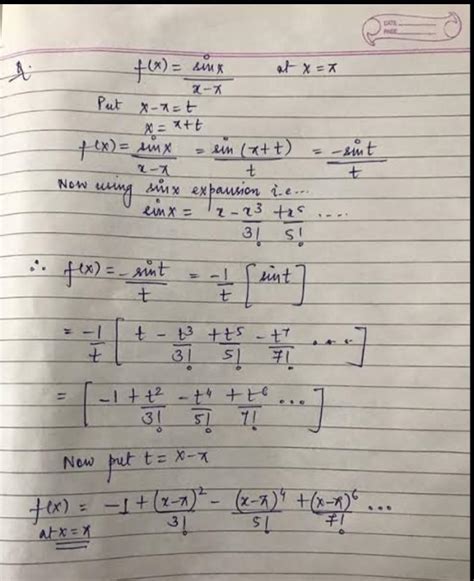 DATE
PAGE
Q. f(x) = sinx / x-π at x = π
Put x-π = t
x = π+t
f(x) = sinx / x-π = sin (π+t) / t = -sint / t
Now using sinx expansion i.e...
sinx = x - x³/3! + x⁵/5! ....
∴ f(x) = -sint / t = -1/t [sint]
= -1/t [t - t³/3! + t⁵/5! - t⁷/7! ...]
= [-1 + t²/3! - t⁴/5! + t⁶/7! ...]
Now put t = x-π
f(x) = -1 + (x-π)²/3! - (x-π)⁴/5! + (x-π)⁶/7! ...
at x = π